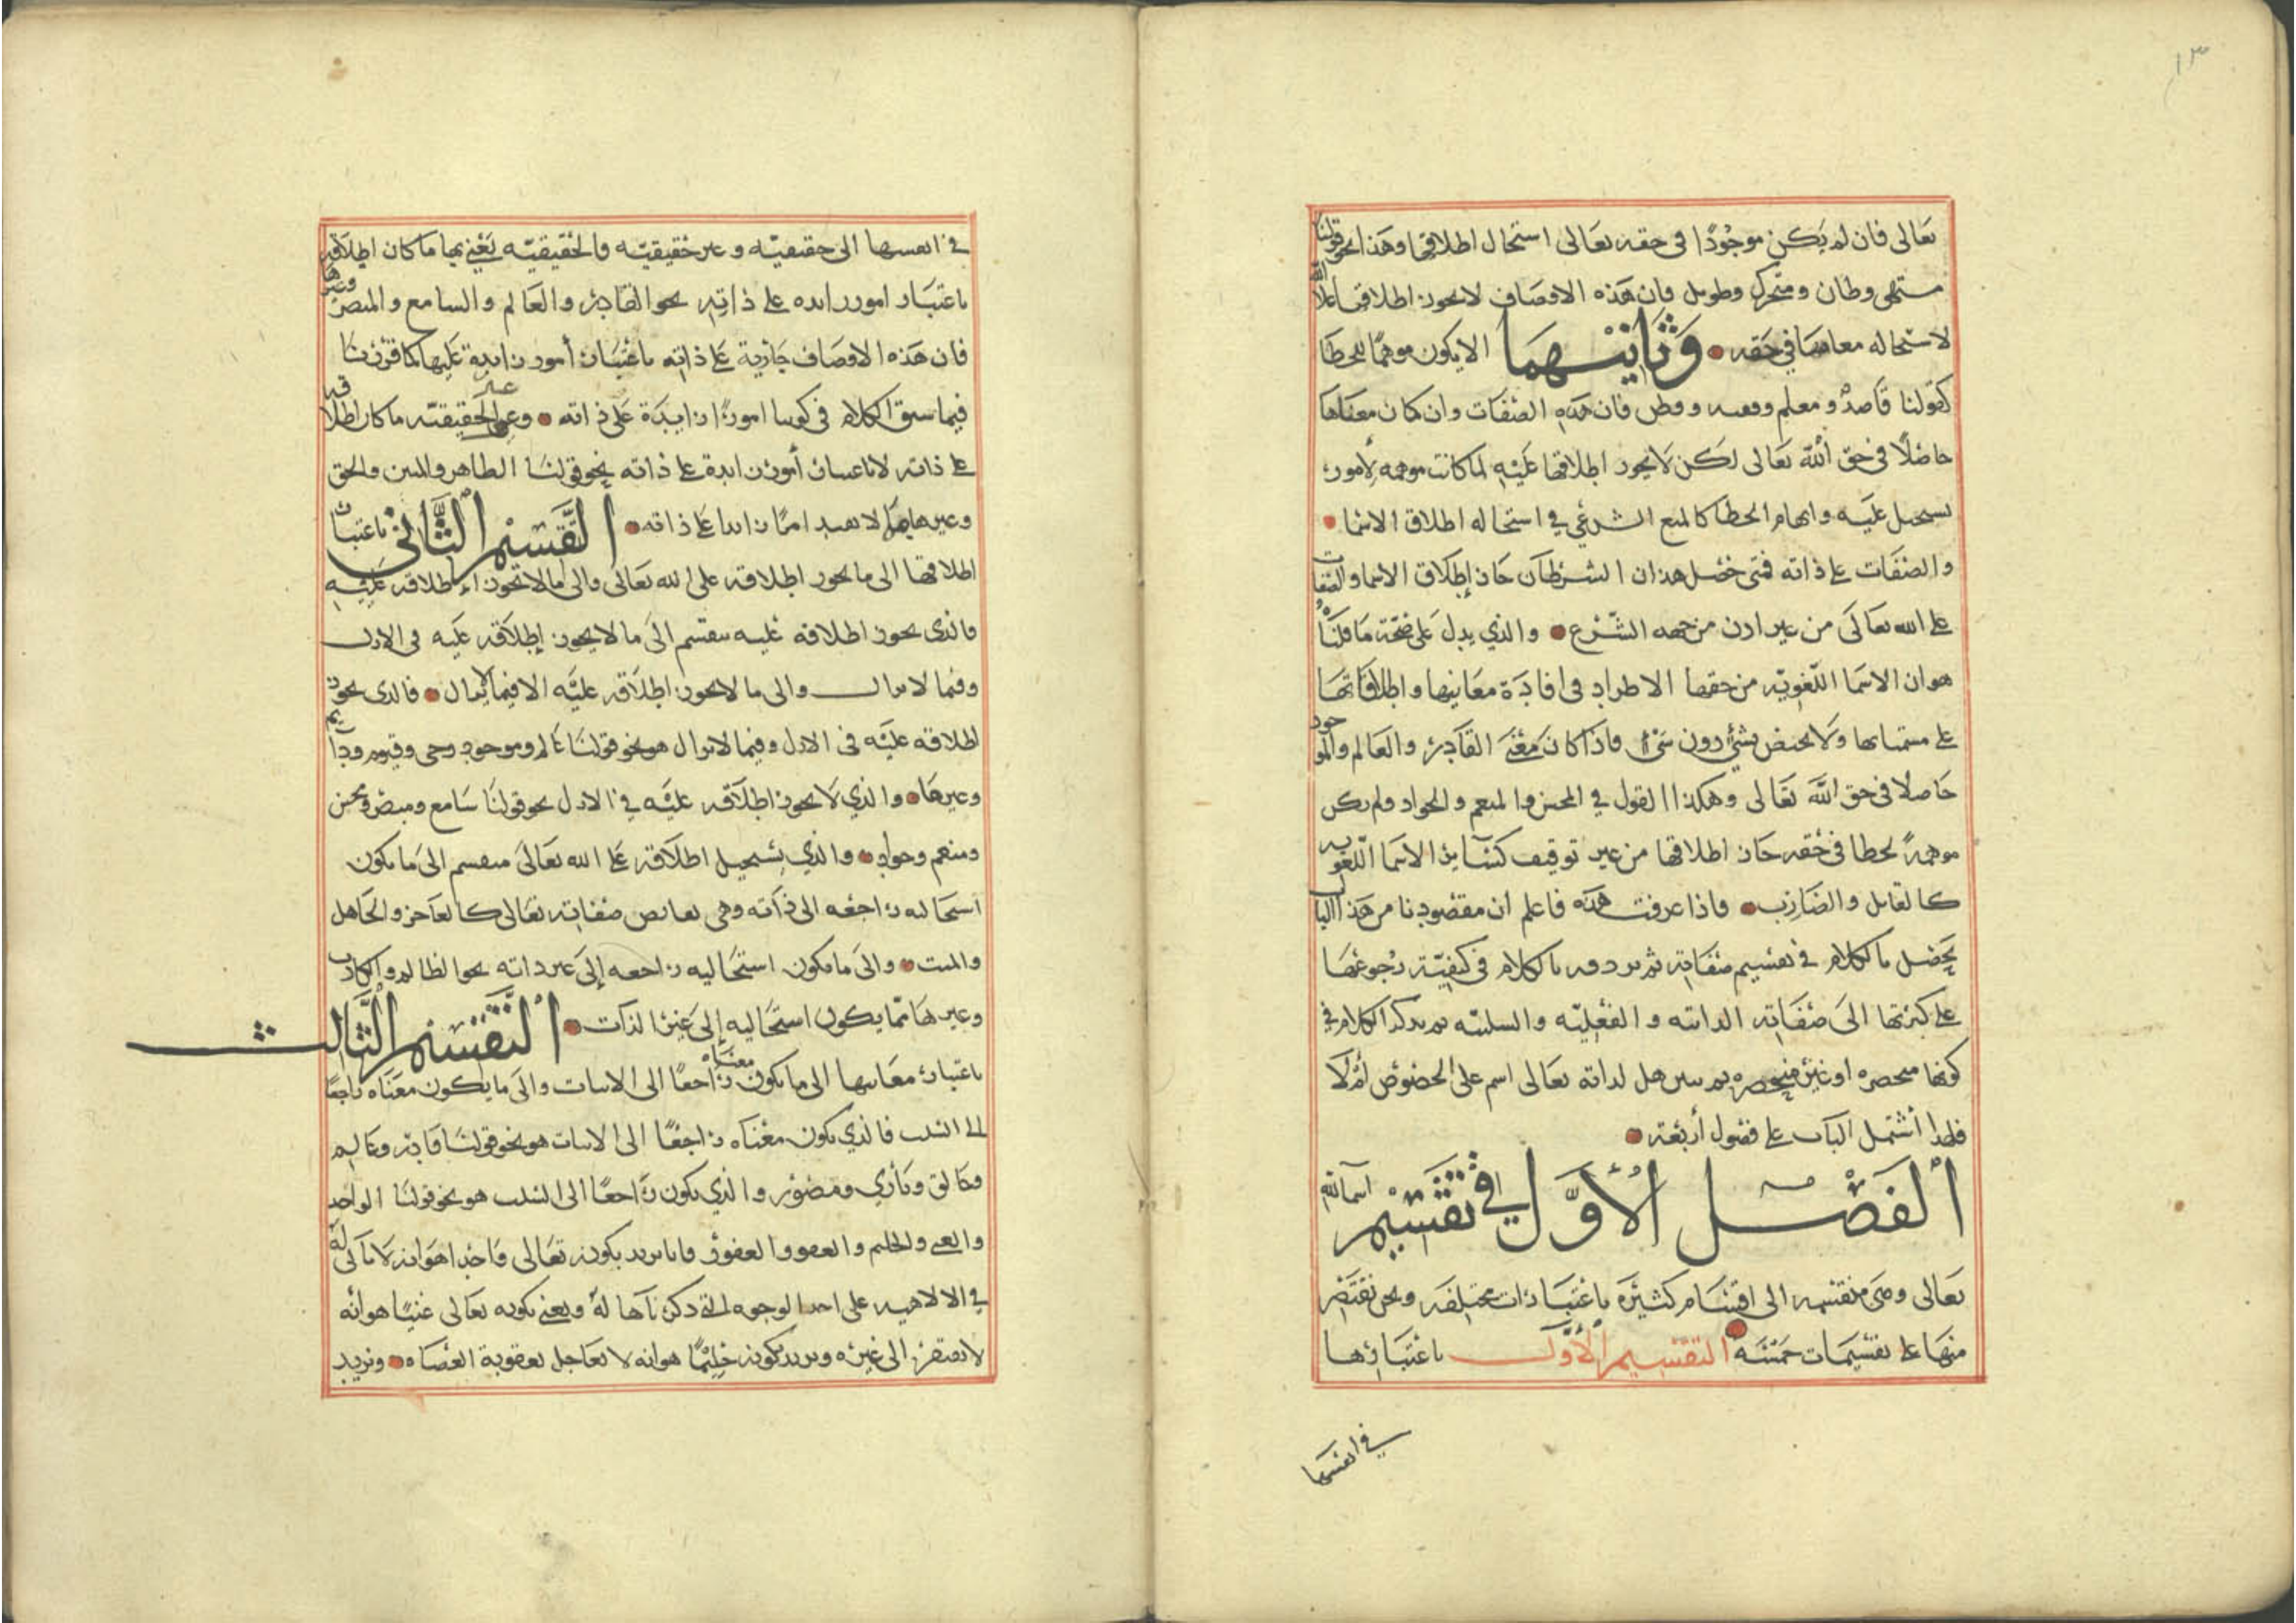 ١٣
تعالى فان لم يكن موجودًا في حقه تعالى استحال اطلاقها وهذا نحو قولنا
مشتهى وظان ومتحرك وطويل فان هذه الاوصاف لا يجوز اطلاقها على الله
لاستحاله معانيها في حقه وثانيهما الا يكون موهمًا للخطا
كقولنا قاصدٌ ومعلم وفقيه وفطن فان هذه الصفات وان كان معناها
حاصلًا في حق الله تعالى لكن لا يجوز اطلاقها عليه لما كانت موهمه لأمور
يستحيل عليه وابهام الخطا كالمنع الشرعي في استحاله اطلاق الاسما
والصفات على ذاته فمتى حصل هذان الشرطان جاز إطلاق الاسما والصفات
على الله تعالى من غير اذن من جهه الشرع والذي يدل على صحة ما قلناه
هو ان الاسما اللغويه من حقها الاطراد في افادة معانيها واطلاقاتها
على مسمياتها ولا يختص بشئ دون شئ فاذا كان معنى القادر والعالم والموجود
حاصلا في حق الله تعالى وهكذا القول في المحسن والمنعم والجواد ولم يكن
موهمةً لخطا في حقه جاز اطلاقها من غير توقيف كسائر الاسما اللغويه
كالقاتل والضارب فاذا عرفت هذه فاعلم ان مقصودنا من هذا الباب
يحصل بالكلام في تقسيم صفاته ثم نردفه بالكلام في كيفيّة رجوعها
على كثرتها الى صفاته الذاتيه والفعليّه والسلبيّه ثم نذكر الكلام في
كونها منحصره او غير منحصره ثم نبين هل لذاته تعالى اسم على الخصوص أم لا
فلهذا أشتمل الباب على فصول أربعة
ألفصل الأول في تقسيم اسما الله
تعالى وهي منقسمه الى اقسام كثيرة باعتبارات مختلفه ونحن نقتصر
منها على تقسيمات خمسه التقسيم الأول باعتبارها
في انفسها
في انفسها الى حقيقيّه وغير حقيقيّه فالحقيقيّه يعني بها ما كان اطلاقه
باعتبار امور زايده على ذاته نحو القادر والعالم والسامع والمبصر وغيرها
فان هذه الاوصاف جارية على ذاته باعتبار أمور زايدة عليها كما قررنا
فيما سبق الكلام في كونها امورًا زايدة على ذاته وغير الحقيقيّه ما كان اطلاقه
على ذاته لا باعتبار أمور زايدة على ذاته نحو قولنا الظاهر والمبين والحق
وغيرها مما لا يفيد امرًا زايدا على ذاته التقسيم الثاني باعتبار
اطلاقها الى ما يجوز اطلاقه على الله تعالى والى ما لا يجوز إطلاقه عليه
فالذي يجوز اطلاقه عليه ينقسم الى ما لا يجوز إطلاقه عليه في الازل
وفيما لا يزال والى ما لا يجوز اطلاقه عليه الا فيما لا يزال فالذي يجوز
اطلاقه عليه في الازل وفيما لا يزال هو نحو قولنا عالم وموجود وحي وقيوم ودايم
وغيرها والذي لا يجوز اطلاقه عليه في الازل نحو قولنا سامع ومبصر ومحسن
ومنعم وجواد والذي يستحيل اطلاقه على الله تعالى منقسم الى ما يكون
استحالته راجعه الى ذاته وهي نقائص صفاته تعالى كالعاجز والجاهل
والميت والى ما يكون استحاليه راجعه إلى غير ذاته نحو الظالم والكاذب
وغيرها مما يكون استحاليه إلى غير الذات ألتقسيم الثالث
باعتبار معانيها الى ما يكون معناه راجعًا الى الاثبات والى ما يكون معناه راجعًا
الى السلب فالذي يكون معناه راجعًا الى الاثبات هو نحو قولنا قادر وعالم
وخالق وباري ومصور والذي يكون راجعًا الى السلب هو نحو قولنا الواحد
والغني والحليم والعفو والغفور فانا نريد بكونه تعالى واحدا هو انه لا ثاني له
في الالاهيه على احد الوجوه التي ذكرناها له ويعني بكونه تعالى غنيًا هو أنه
لا يفتقر الى غيره ونريد بكونه حليمًا هو انه لا يعاجل بعقوبة العصاه ونريد